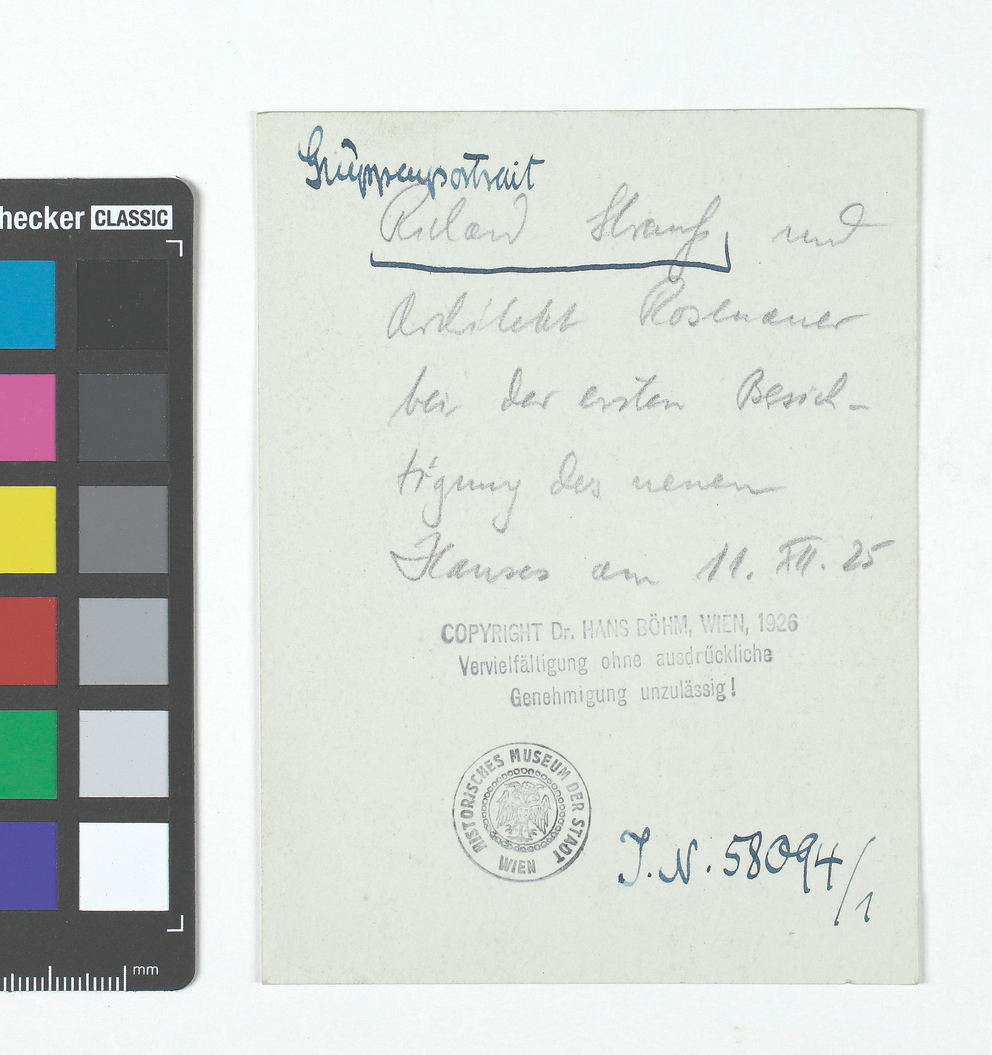 hecker CLASSIC
Gruppenportrait
Richard Strauß und
Architekt Rosenauer
bei der ersten Besich-
tigung des neuen
Hauses am 11. XII. 25
COPYRIGHT Dr. HANS BÖHM, WIEN, 1926
Vervielfältigung ohne ausdrückliche
Genehmigung unzulässig!
HISTORISCHES MUSEUM DER STADT WIEN
I.N. 58094/1
mm